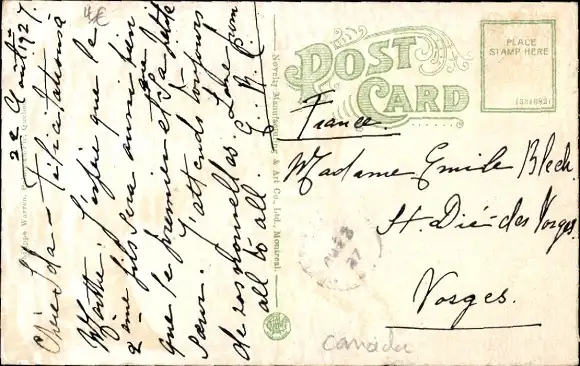 4€
22 Août 1927.
Chère Ida - Félicitations à
Marthe. J'espère que le
2ème fils sera aussi bien
que le premier et sa petite
Sœur. J'attends toujours
de vos nouvelles. Love from
all to all. G. R. C.
Novelty Manufacturing & Art Co., Ltd., Montreal.
POST CARD
PLACE
STAMP HERE
France.
Madame Emile Bleck
St. Dié-des Vosges
Vosges.
27
Canada